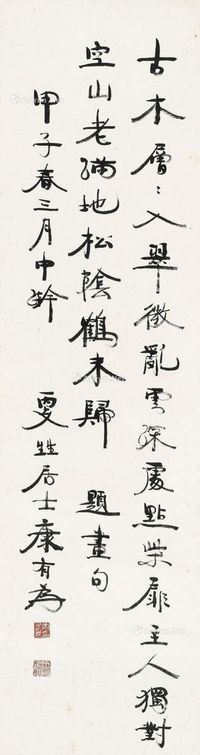 古木層〻入翠微亂雲深處點柴扉主人獨對
空山老滿地松陰鶴未歸　題畫句
甲子春三月中幹　更甡居士康有為